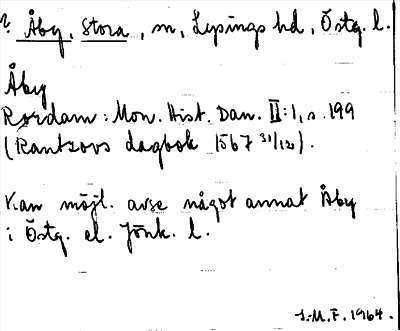 ? Åby, Stora, m, Lysings hd, Östg. l.
Åby
Rørdam: Mon. Hist. Dan. II:1, s. 199
(Rantzovs dagbok 1567 31/12).
Kan möjl. avse något annat Åby
i Östg. el. Jönk. l.
1964.